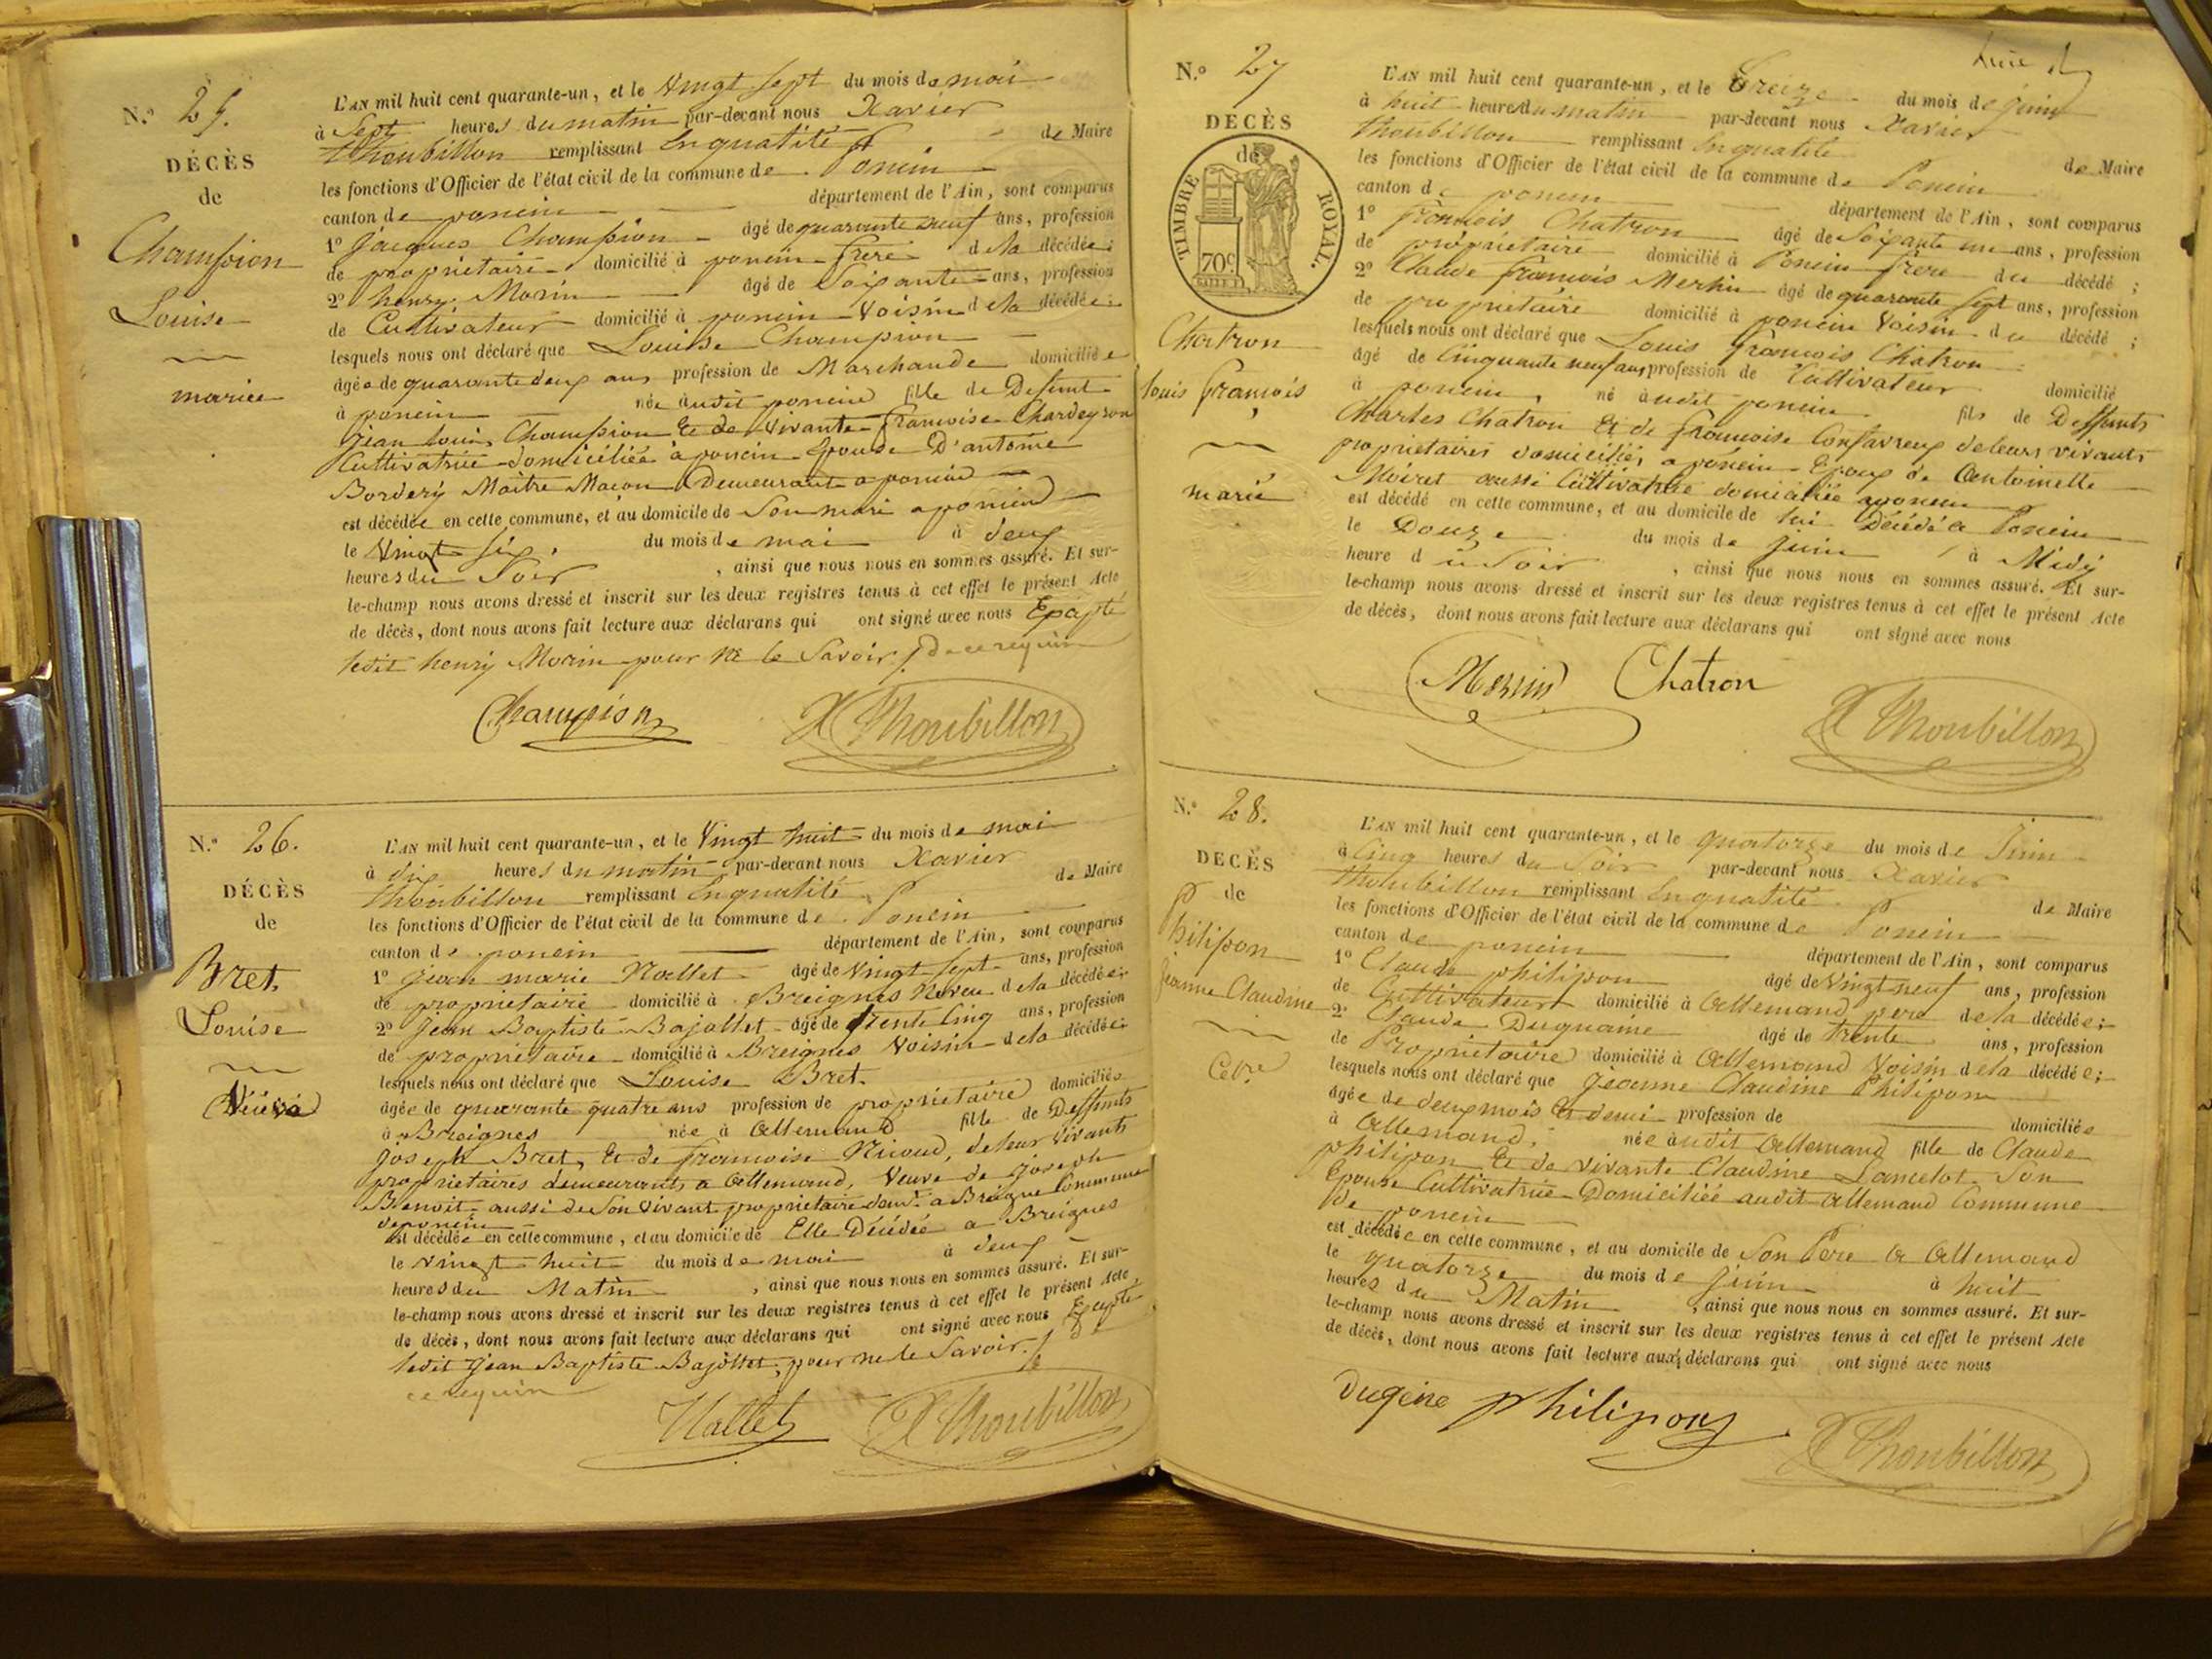 N.° 25.
DÉCÈS
de
Champion
Louise
mariée
L'AN mil huit cent quarante-un, et le Vingt Sept du mois de mai
à Sept heures du matin par-devant nous Xavier
Thoubillon remplissant En qualité de Maire
les fonctions d'Officier de l'état civil de la commune de Poncin
canton de poncin département de l'Ain, sont comparus
1° Jacques Champion âgé de quarante neuf ans, profession
de propriétaire domicilié à poncin frère de la décédée;
2° henry Morin âgé de Soixante ans, profession
de Cultivateur domicilié à poncin Voisin de la décédée;
lesquels nous ont déclaré que Louise Champion
âgée de quarante deux ans profession de Marchande domiciliée
à poncin née audit poncin fille de Defunt
Jean Louis Champion Et de Vivante francoise Chardeyron
Cultivatrice domiciliée à poncin Epouse D'antoine
Bordery Maitre Macon Demeurante a poncin
est décédée en cette commune, et au domicile de Son mari a poncin
le Vingt Six, du mois de mai à deux
heures du Soir, ainsi que nous nous en sommes assuré. Et sur-
le-champ nous avons dressé et inscrit sur les deux registres tenus à cet effet le présent Acte
de décès, dont nous avons fait lecture aux déclarans qui ont signé avec nous Excepté
ledit henry Morin pour ne le Savoir de ce requis
Champion X Thoubillon
N.° 26.
DÉCÈS
de
Bret
Louise
Veuve
L'AN mil huit cent quarante-un, et le Vingt huit du mois de mai
à dix heures du matin par-devant nous Xavier
Thoubillon remplissant En qualité de Maire
les fonctions d'Officier de l'état civil de la commune de Poncin
canton de poncin département de l'Ain, sont comparus
1° Jean marie Nallet âgé de Vingt Sept ans, profession
de propriétaire domicilié à Breignes Neveu de la décédée;
2° Jean Baptiste Bajollet âgé de trente Cinq ans, profession
de propriétaire domicilié à Breignes Voisin de la décédée;
lesquels nous ont déclaré que Louise Bret
âgée de quarante quatre ans profession de propriétaire domiciliée
à Breignes née à Allemand fille de Deffunts
Joseph Bret, Et de francoise Nicoud, de leur Vivants
propriétaires demeurants a Allemand, Veuve de joseph
Benoit aussi de Son Vivant propriétaire demt. a Breigne Commune
de poncin
est décédée en cette commune, et au domicile de Elle Décédée a Breignes
le vingt huit du mois de mai à deux
heures du Matin, ainsi que nous nous en sommes assuré. Et sur-
le-champ nous avons dressé et inscrit sur les deux registres tenus à cet effet le présent Acte
de décès, dont nous avons fait lecture aux déclarans qui ont signé avec nous Excepté
ledit Jean Baptiste Bajollet, pour ne le Savoir. de
ce requis
Nallet X Thoubillon
N.° 27
DECÈS
de
TIMBRE ROYAL.
70c
Chatron
louis francois
marié
L'AN mil huit cent quarante-un, et le Treize du mois de juin
à huit heures du matin par-devant nous Xavier
Thoubillon remplissant En qualité de Maire
les fonctions d'Officier de l'état civil de la commune de Poncin
canton de poncin département de l'Ain, sont comparus
1° françois Chatron âgé de Soixante un ans, profession
de propriétaire domicilié à Poncin frère du décédé;
2° Claude françois Mermin âgé de quarante Sept ans, profession
de propriétaire domicilié à poncin Voisin du décédé;
lesquels nous ont déclaré que Louis francois Chatron
âgé de Cinquante neuf ans profession de Cultivateur domicilié
à poncin, né audit poncin fils de Deffunts
Charles Chatron Et de francoise Confavreux de leurs vivants
propriétaires domiciliés a poncin Epoux de Antoinette
Moiret aussi Cultivatrice domiciliée a poncin
est décédé en cette commune, et au domicile de lui Décédé a Poncin
le Douze du mois de juin à Midy
heure du Soir, ainsi que nous nous en sommes assuré. Et sur-
le-champ nous avons dressé et inscrit sur les deux registres tenus à cet effet le présent Acte
de décès, dont nous avons fait lecture aux déclarans qui ont signé avec nous
Mermin Chatron
X Thoubillon
N.° 28.
DECÈS
de
Philipon
jeanne Claudine
Celbre
L'AN mil huit cent quarante-un, et le quatorze du mois de Juin
à Cinq heures du Soir par-devant nous Xavier
Thoubillon remplissant En qualité de Maire
les fonctions d'Officier de l'état civil de la commune de Poncin
canton de poncin département de l'Ain, sont comparus
1° Claude philipon âgé de Vingt neuf ans, profession
de Cultivateur domicilié à Allemand père de la décédée;
2° Claude Duguaine âgé de trente ans, profession
de Propriétaire domicilié à Allemand Voisin de la décédée;
lesquels nous ont déclaré que Jeanne Claudine Philipon
âgée de deux mois Et demi profession de domiciliée
à Allemand, née audit Allemand fille de Claude
philipon Et de Vivante Claudine Lancelot Son
Epouse Cultivatrice Domiciliée audit Allemand Commune
de poncin
est décédée en cette commune, et au domicile de Son Père a Allemand
le quatorze du mois de juin à huit
heures du Matin, ainsi que nous nous en sommes assuré. Et sur-
le-champ nous avons dressé et inscrit sur les deux registres tenus à cet effet le présent Acte
de décès, dont nous avons fait lecture aux déclarans qui ont signé avec nous
dugène philipon
X Thoubillon